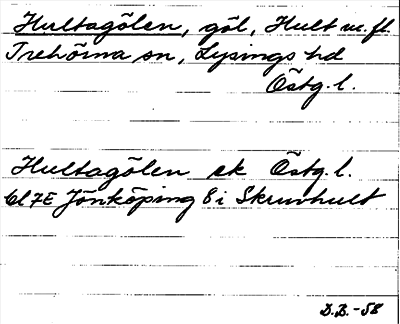 Hultagölen, göl, Hult m. fl.
Trehörna sn, Lysings hd
Östg. l.
Hultagölen ek Östg. l.
Bl 7E Jönköping 8i Skruvhult
D.B. -58